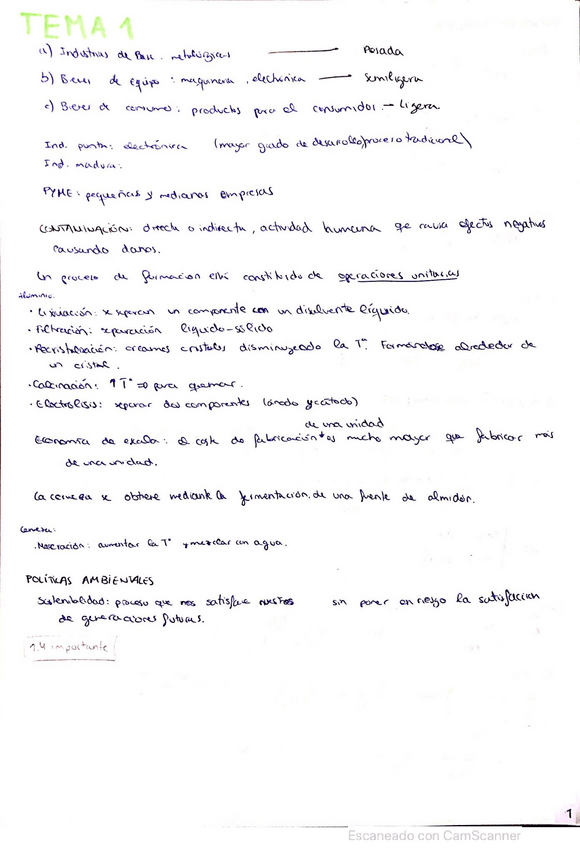 TEMA 1
a) Industrias de Base. metalúrgicas → Pesada
b) Bienes de equipo: maquinaria, electrónica → semiligera
c) Bienes de consumo: productos para el consumidor. – Ligera
Ind. punta: electrónica (mayor grado de desarrollo/proceso tradicional)
Ind. madura:
PYME: pequeñas y medianas empresas
CONTAMINACIÓN: directa o indirecta, actividad humana que causa efectos negativos
causando daños.
Un proceso de formación está constituido de operaciones unitarias
Aluminio:
· Lixiviación: se separan un componente con un disolvente líquido.
· Filtración: separación líquido-sólido
· Recristalización: creamos cristales disminuyendo la Tª. Formándose alrededor de
un cristal.
· Calcinación: ↑ Tª => para quemar.
· Electrólisis: separar dos componentes (ánodo y cátodo)
de una unidad
Economía de escala: el coste de fabricación es mucho mayor que fabricar más
de una unidad.
La cerveza se obtiene mediante la fermentación de una fuente de almidón.
Cerveza:
· Maceración: aumentar la Tª y mezclar con agua.
POLÍTICAS AMBIENTALES
Sostenibilidad: proceso que nos satisface nuestros sin poner en riesgo la satisfacción
de generaciones futuras.
1.4 importante
1
Escaneado con CamScanner